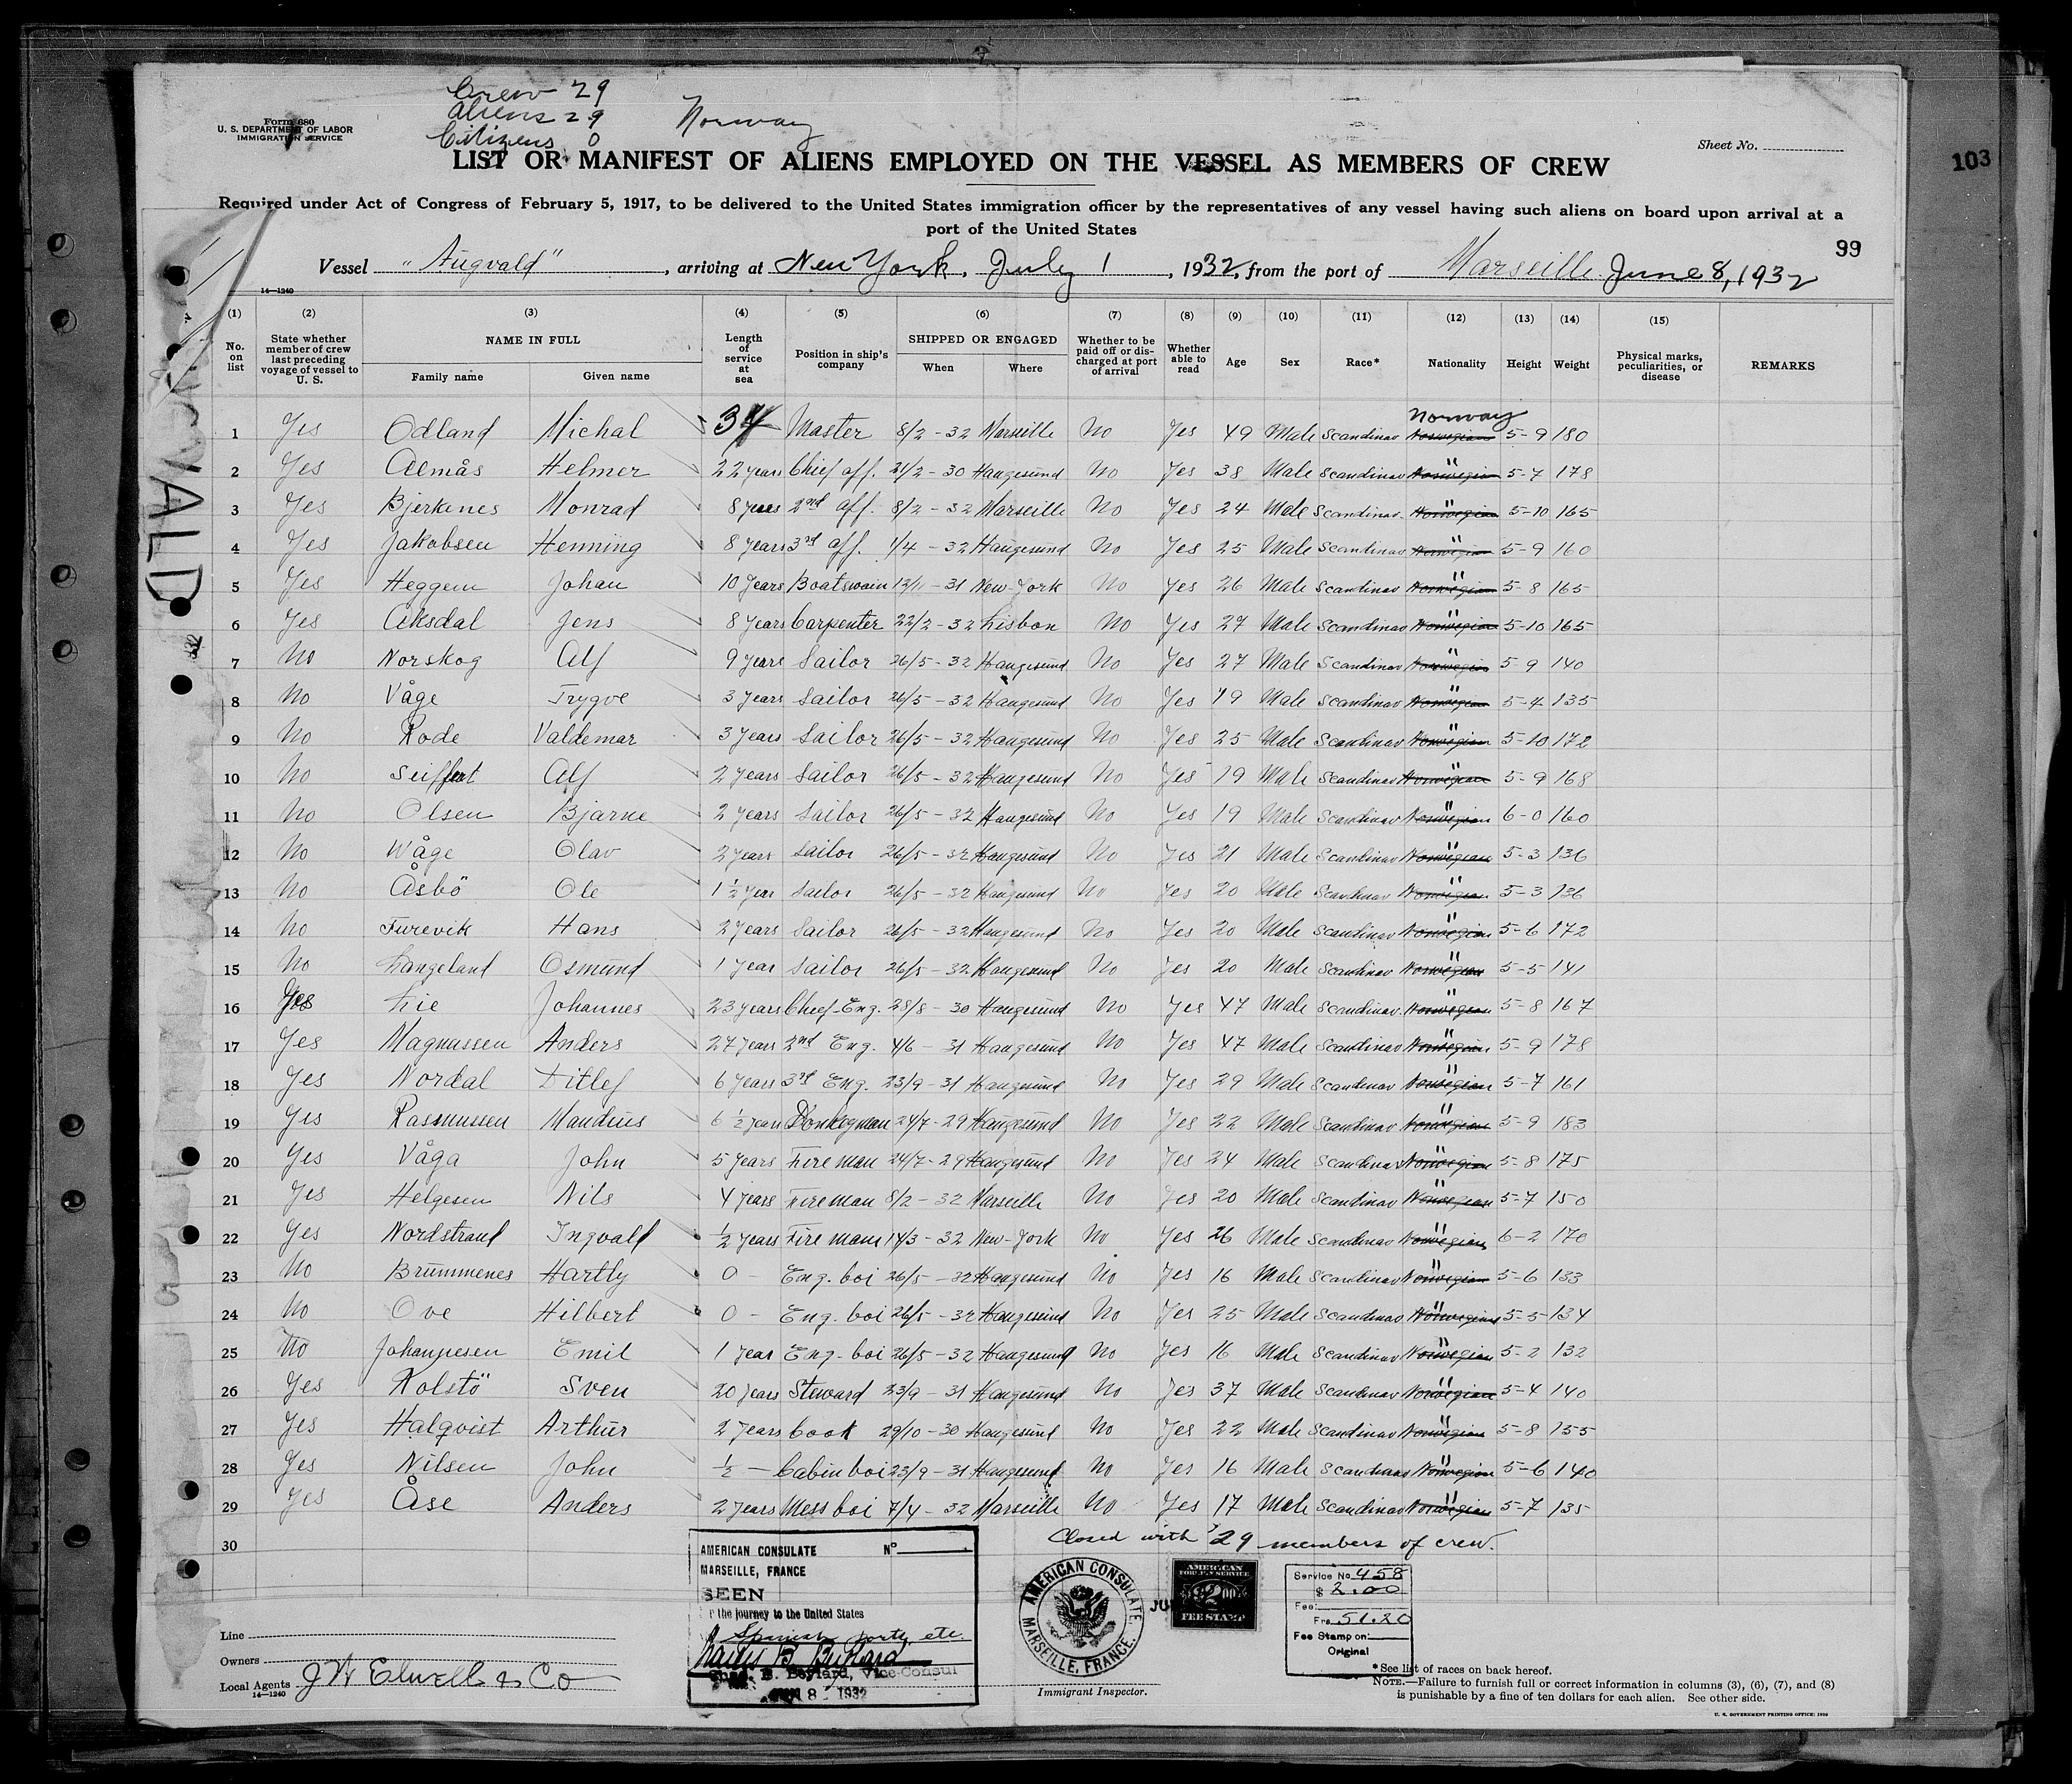 Crew 29
Aliens 29
Citizens 0
Norway
Form 680
U. S. DEPARTMENT OF LABOR
IMMIGRATION SERVICE
Sheet No.
103
LIST OR MANIFEST OF ALIENS EMPLOYED ON THE VESSEL AS MEMBERS OF CREW
Required under Act of Congress of February 5, 1917, to be delivered to the United States immigration officer by the representatives of any vessel having such aliens on board upon arrival at a
port of the United States
99
Vessel "Augvald", arriving at New York, July 1, 1932, from the port of Marseille June 8, 1932
14—1240
(1) (2) (3) (4) (5) (6) (7) (8) (9) (10) (11) (12) (13) (14) (15)
No. on list
State whether member of crew last preceding voyage of vessel to U. S.
NAME IN FULL
Family name
Given name
Length of service at sea
Position in ship's company
SHIPPED OR ENGAGED
When
Where
Whether to be paid off or discharged at port of arrival
Whether able to read
Age
Sex
Race*
Nationality
Height
Weight
Physical marks, peculiarities, or disease
REMARKS
VALD
1 Yes Odland Michal 34 Master 8/2 - 32 Marseille No Yes 49 Male Scandinav Norwegian Norway 5-9 180
2 Yes Aemås Helmer 22 years Chief off. 21/2 - 30 Haugesund No Yes 38 Male Scandinav Norwegian " 5-7 178
3 Yes Bjerkenes Monrad 8 years 2nd off. 8/2 - 32 Marseille No Yes 24 Male Scandinav. Norwegian " 5-10 165
4 Yes Jakobsen Henning 8 years 3rd off. 1/4 - 32 Haugesund No Yes 25 Male Scandinav Norwegian " 5-9 160
5 Yes Heggem Johan 10 years Boatswain 12/11 - 31 New-York No Yes 26 Male Scandinav Norwegian " 5-8 165
6 Yes Aksdal Jens 8 years Carpenter 22/2 - 32 Lisbon No Yes 27 Male Scandinav Norwegian " 5-10 165
7 No Norskog Alf 9 years Sailor 26/5 - 32 Haugesund No Yes 27 Male Scandinav Norwegian " 5-9 140
8 No Våge Trygve 3 years Sailor 26/5 - 32 Haugesund No Yes 19 Male Scandinav Norwegian " 5-4 135
9 No Rode Valdemar 3 years Sailor 26/5 - 32 Haugesund No Yes 25 Male Scandinav Norwegian " 5-10 172
10 No Seiffert Alf 2 years Sailor 26/5 - 32 Haugesund No Yes 19 Male Scandinav Norwegian " 5-9 168
11 No Olsen Bjarne 2 years Sailor 26/5 - 32 Haugesund No Yes 19 Male Scandinav Norwegian " 6-0 160
12 No Wåge Olav 2 years Sailor 26/5 - 32 Haugesund No Yes 21 Male Scandinav Norwegian " 5-3 136
13 No Åsbö Ole 1 1/2 year Sailor 26/5 - 32 Haugesund No Yes 20 Male Scandinav Norwegian " 5-3 136
14 No Furevik Hans 2 years Sailor 26/5 - 32 Haugesund No Yes 20 Male Scandinav Norwegian " 5-6 172
15 No Langeland Osmund 1 year Sailor 26/5 - 32 Haugesund No Yes 20 Male Scandinav Norwegian " 5-5 141
16 Yes Lie Johannes 23 years Chief-Eng. 28/8 - 30 Haugesund No Yes 47 Male Scandinav. Norwegian " 5-8 167
17 Yes Magnussen Anders 27 years 2nd Eng. 4/6 - 31 Haugesund No Yes 47 Male Scandinav Norwegian " 5-9 178
18 Yes Nordal Ditlef 6 years 3rd Eng. 23/9 - 31 Haugesund No Yes 29 Male Scandinav Norwegian " 5-7 161
19 Yes Rasmussen Mandius 6 1/2 years Donkeyman 24/7 - 29 Haugesund No Yes 22 Male Scandinav Norwegian " 5-9 183
20 Yes Våga John 5 years Fireman 24/7 - 29 Haugesund No Yes 24 Male Scandinav Norwegian " 5-8 175
21 Yes Helgesen Nils 4 years Fireman 8/2 - 32 Marseille No Yes 20 Male Scandinav Norwegian " 5-7 150
22 Yes Nordstrand Ingvald 1/2 years Fireman 14/3 - 32 New-York No Yes 26 Male Scandinav Norwegian " 6-2 170
23 No Brummenes Hartly 0 - Eng. boi 26/5 - 32 Haugesund No Yes 16 Male Scandinav Norwegian " 5-6 133
24 No Ove Hilbert 0 - Eng. boi 26/5 - 32 Haugesund No Yes 25 Male Scandinav Norwegian " 5-5 134
25 No Johannesen Emil 1 year Eng. boi 26/5 - 32 Haugesund No Yes 16 Male Scandinav Norwegian " 5-2 132
26 Yes Kolstö Sven 20 years Steward 23/9 - 31 Haugesund No Yes 37 Male Scandinav Norwegian " 5-4 140
27 Yes Halqvist Arthur 2 years Cook 29/10 - 30 Haugesund No Yes 22 Male Scandinav Norwegian " 5-8 155
28 Yes Nilsen John 1/2 — Cabin boi 23/9 - 31 Haugesund No Yes 16 Male Scandinav Norwegian " 5-6 140
29 Yes Åse Anders 2 years Mess boi 7/4 - 32 Marseille No Yes 17 Male Scandinav Norwegian " 5-7 135
30
Closed with 29 members of crew.
AMERICAN CONSULATE No
MARSEILLE, FRANCE
SEEN
the journey to the United States
Spanish ports, etc.
Chas. B. Beylard, Vice-Consul
JUN 8 - 1932
AMERICAN CONSULATE
MARSEILLE, FRANCE.
AMERICAN
FOREIGN SERVICE
$2.00
FEE STAMP
Service No. 458
$ 2.00
Fee:
Frs. 51.20
Fee Stamp on:
Original
Line
Owners
Local Agents J W Elwell & Co
14—1240
Immigrant Inspector.
*See list of races on back hereof.
NOTE.—Failure to furnish full or correct information in columns (3), (6), (7), and (8)
is punishable by a fine of ten dollars for each alien. See other side.
U. S. GOVERNMENT PRINTING OFFICE: 1930